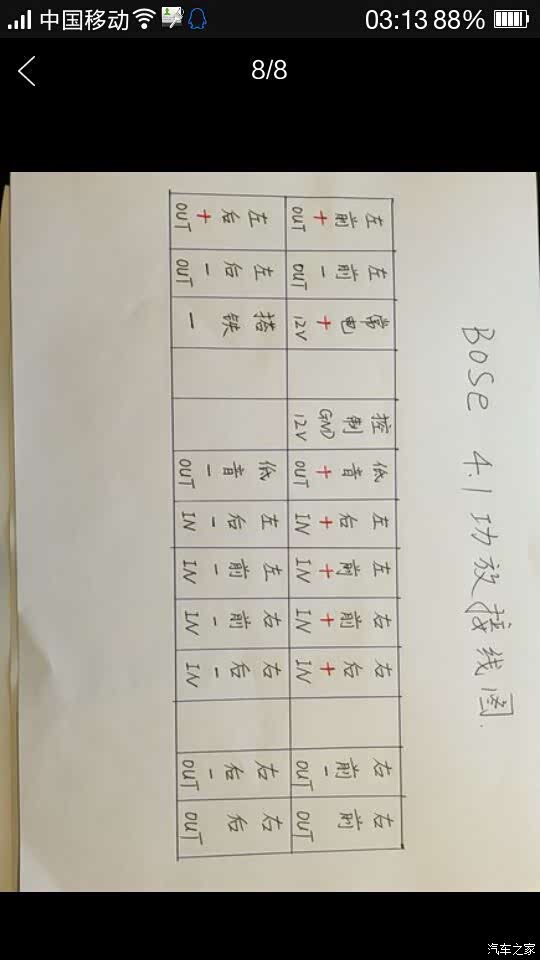 中国移动 03:13 88%
8/8
BOSE 4.1功放接线图.
左前+OUT
左前-OUT
常电+12V
控制GND12V
低音+OUT
左后+IN
左前+IN
右前+IN
右后+IN
右前-OUT
右前OUT
左后+OUT
左后-OUT
搭铁-
低音-OUT
左后-IN
左前-IN
右前-IN
右后-IN
右后-OUT
右后OUT
汽车之家